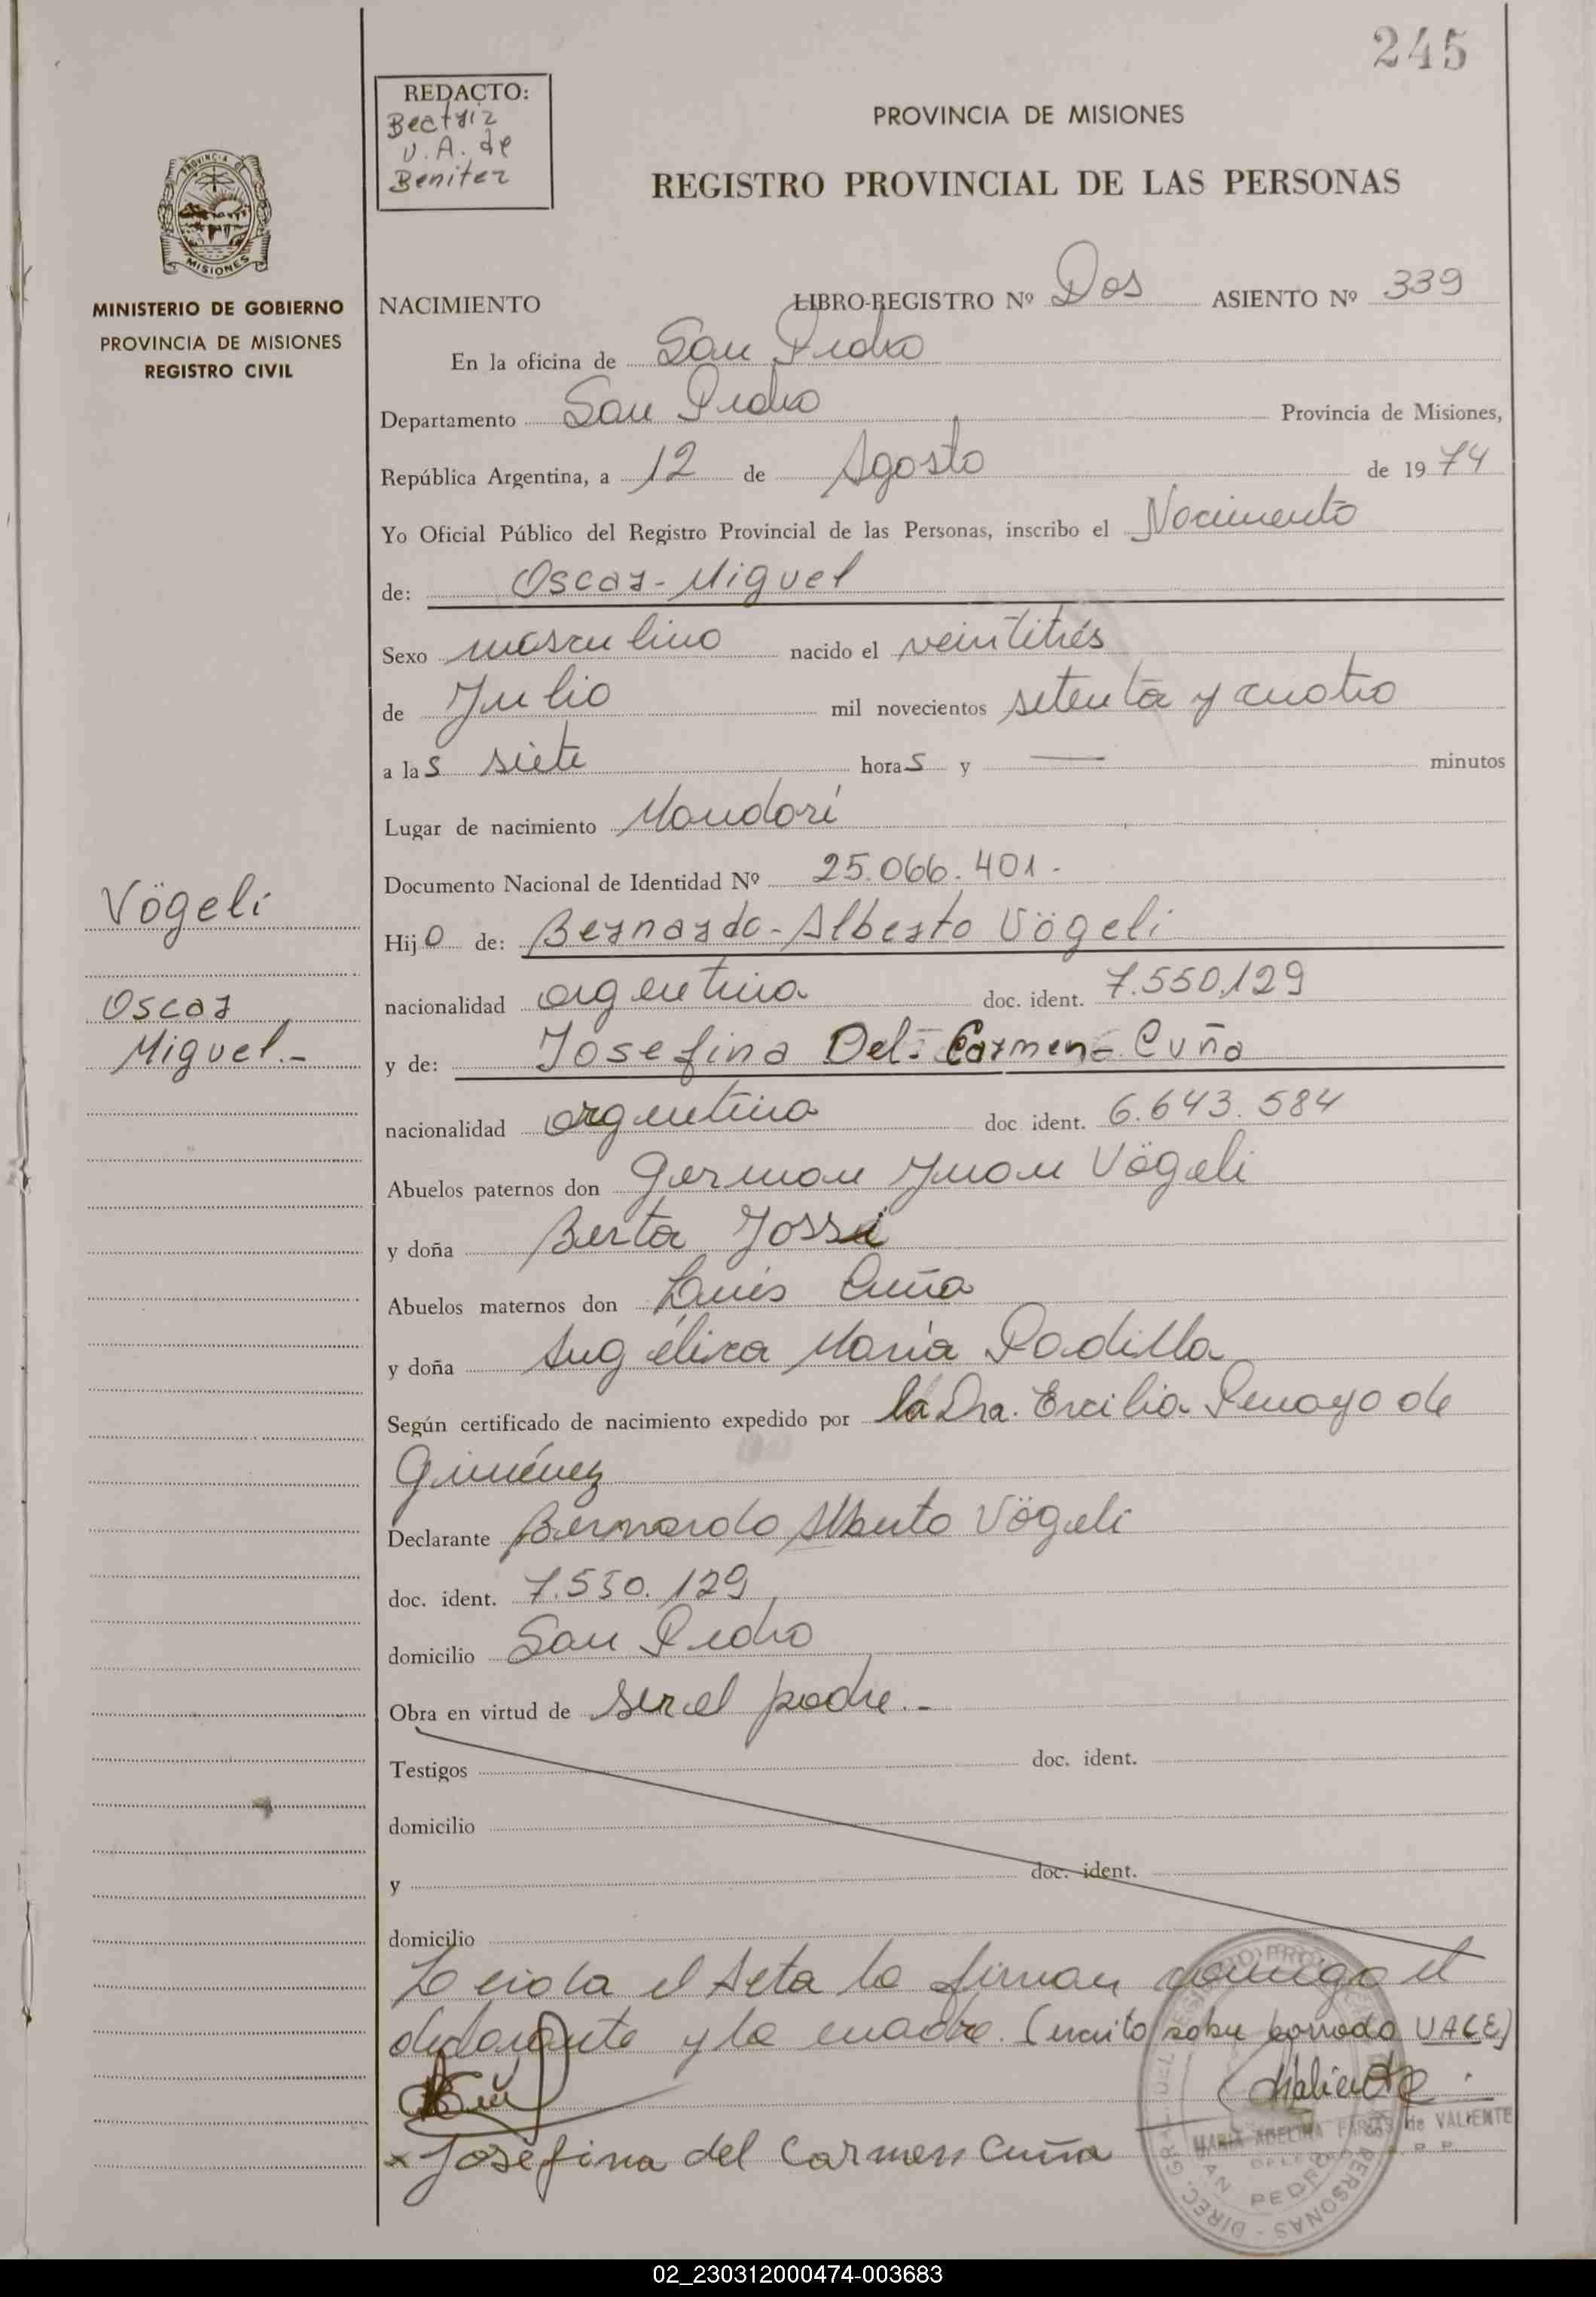 245
REDACTO:
Beatriz
V. A. de
Benitez
PROVINCIA DE MISIONES
REGISTRO PROVINCIAL DE LAS PERSONAS
PROVINCIA DE
MISIONES
MINISTERIO DE GOBIERNO
PROVINCIA DE MISIONES
REGISTRO CIVIL
NACIMIENTO LIBRO-REGISTRO Nº Dos ASIENTO Nº 339
En la oficina de San Pedro
Departamento San Pedro Provincia de Misiones,
República Argentina, a 12 de Agosto de 1974
Yo Oficial Público del Registro Provincial de las Personas, inscribo el Nacimiento
de: Oscar-Miguel
Sexo masculino nacido el veintitrés
de Julio mil novecientos setenta y cuatro
a las siete horas y — minutos
Lugar de nacimiento Mondorí
Documento Nacional de Identidad Nº 25.066.401.-
Vögeli
Oscar
Miguel.-
Hijo de: Bernardo-Alberto Vögeli
nacionalidad argentina doc. ident. 7.550.129
y de: Josefina Del-Carmen Cuña
nacionalidad argentina doc ident. 6.643.584
Abuelos paternos don German Juan Vögeli
y doña Berta Jossi
Abuelos maternos don Luis Cuña
y doña Angélica María Padilla
Según certificado de nacimiento expedido por la Dra. Ercilia Penayo de
Giménez
Declarante Bernardo Alberto Vögeli
doc. ident. 7.550.129
domicilio San Pedro
Obra en virtud de ser el padre.-
Testigos doc. ident.
domicilio
y doc. ident.
domicilio
Leída el Acta la firman conmigo el
declarante y la madre. (escrito sobre borrado VALE)
MARIA ADELINA FARIAS de VALIENTE
SAN PEDRO
x Josefina del Carmen Cuña
02_230312000474-003683